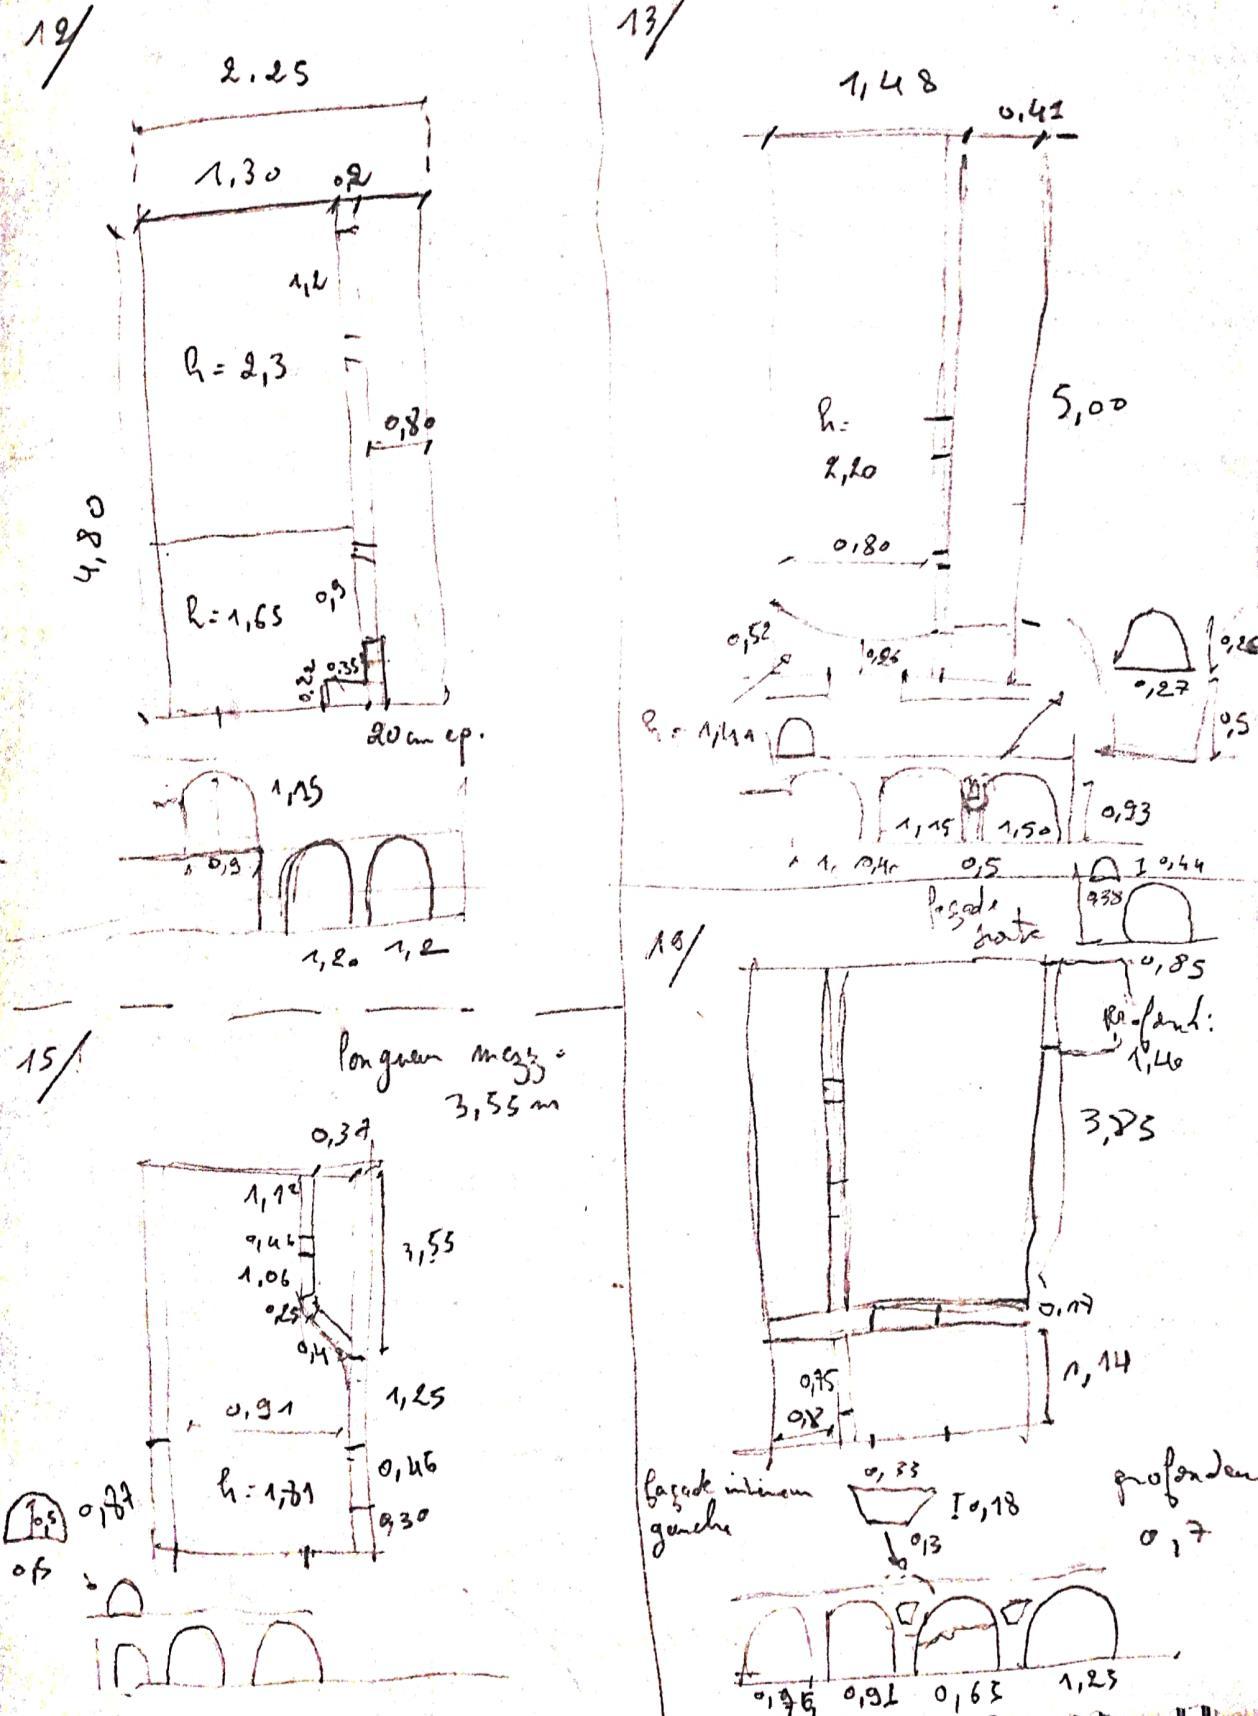 12/
2.25
1,30
0,2
1,2
h = 2,3
0,80
4,80
0,9
h = 1,65
0,22
0,35
20 cm ep.
1,15
0,9
1,20
1,2
13/
1,48
0,41
5,00
h =
2,20
0,80
0,52
0,26
0,27
0,5
1,15
1,50
0,93
0,5
0,44
façade
0,38
0,85
15/
longueur mezz.
3,55 m
0,37
1,12
0,46
3,55
1,06
0,25
0,4
1,25
0,91
0,46
h = 1,81
0,30
0,87
0,5
19/
1,40
3,85
0,17
1,14
0,75
0,8
façade intérieur
gauche
0,33
I 0,18
0,3
profondeur
0,7
0,91
0,63
1,23